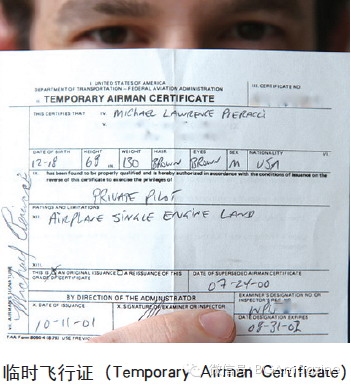 I. UNITED STATES OF AMERICA
DEPARTMENT OF TRANSPORTATION - FEDERAL AVIATION ADMINISTRATION
III. CERTIFICATE NO.
II. TEMPORARY AIRMAN CERTIFICATE
THIS CERTIFIES THAT IV. MICHAEL LAWRENCE PIERACCI
V.
DATE OF BIRTH HEIGHT WEIGHT HAIR EYES SEX NATIONALITY VI.
12-18 69 IN. 130 BROWN BROWN M USA
IX. has been found to be properly qualified and is hereby authorized in accordance with the conditions of issuance on the
reverse of this certificate to exercise the privileges of
PRIVATE PILOT
RATINGS AND LIMITATIONS
XII. AIRPLANE SINGLE ENGINE LAND
XIII.
THIS IS AN ORIGINAL ISSUANCE A REISSUANCE OF THIS
GRADE OF CERTIFICATE
DATE OF SUPERSEDED AIRMAN CERTIFICATE
07-24-00
BY DIRECTION OF THE ADMINISTRATOR
EXAMINER'S DESIGNATION NO. OR
X. DATE OF ISSUANCE
X. SIGNATURE OF EXAMINER OR INSPECTOR
10-11-01
DATE DESIGNATION EXPIRES
VII. AIRMAN'S SIGNATURE
FAA Form
USE PREVIOUS
临时飞行证（Temporary Airman Certificate）